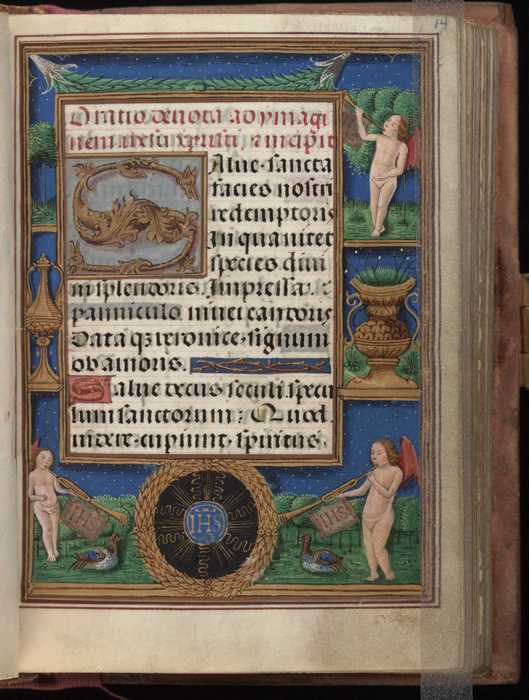 14
Oratio devota ad ymagi
nem ihesu xpristi & incipit
Salve sancta
facies nostri
redemptoris
In qua nitet
species divi
ni splendoris. Impressa
panniculo nivei candoris
Data qz veronice signum
ob amoris.
Salve decus seculi specu
lum sanctorum: Quod
videre cupiunt spiritus
IHS
IHS
IHS